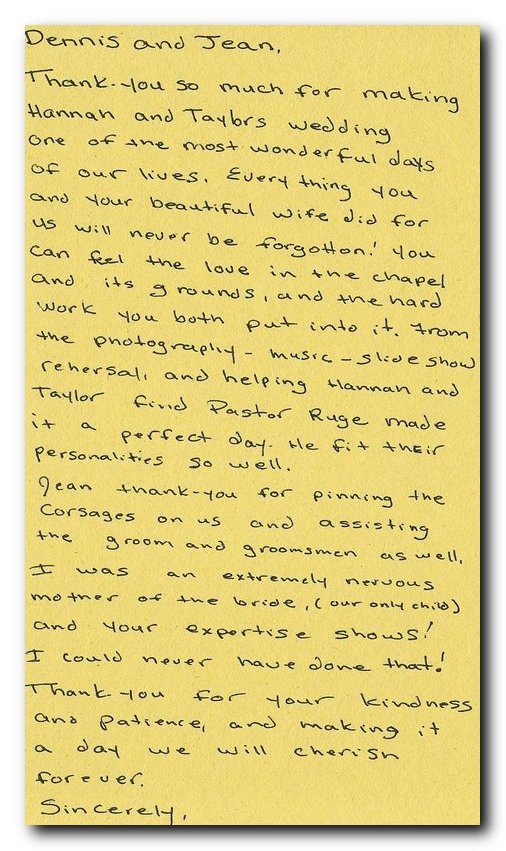 Dennis and Jean,
Thank-you so much for making
Hannah and Taylors wedding
one of the most wonderful days
of our lives. Everything you
and your beautiful wife did for
us will never be forgotton! You
can feel the love in the chapel
and its grounds, and the hard
work you both put into it. From
the photography - music - slide show
rehersal, and helping Hannah and
Taylor find Pastor Ruge made
it a perfect day. He fit their
personalities so well.
Jean thank-you for pinning the
corsages on us and assisting
the groom and groomsmen as well.
I was an extremely nervous
mother of the bride, (our only child)
and your expertise shows!
I could never have done that!
Thank-you for your kindness
and patience, and making it
a day we will cherish
forever.
Sincerely,